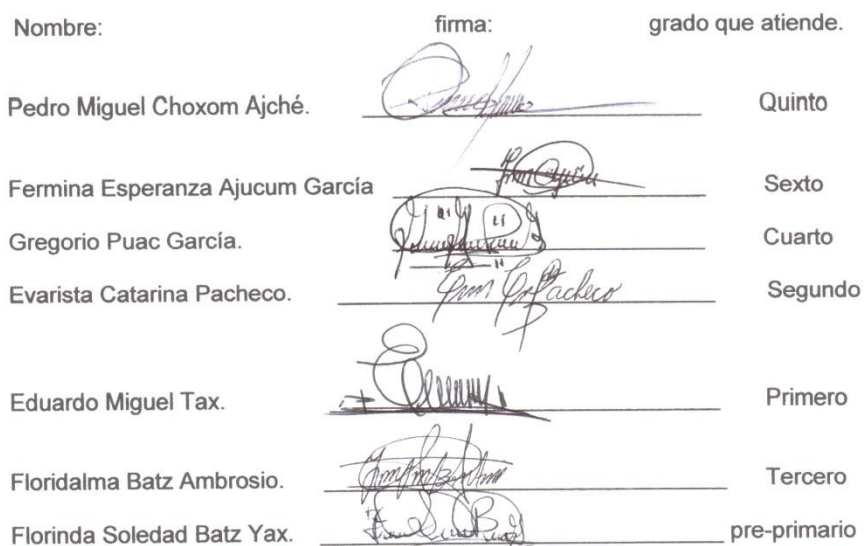 Nombre: firma: grado que atiende.
Pedro Miguel Choxom Ajché. Quinto
Fermina Esperanza Ajucum García Sexto
Gregorio Puac García. Cuarto
Evarista Catarina Pacheco. Pacheco Segundo
Eduardo Miguel Tax. Primero
Floridalma Batz Ambrosio. Tercero
Florinda Soledad Batz Yax. pre-primario